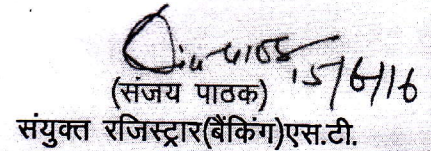 15/6/16
(संजय पाठक)
संयुक्त रजिस्ट्रार(बैंकिंग)एस.टी.